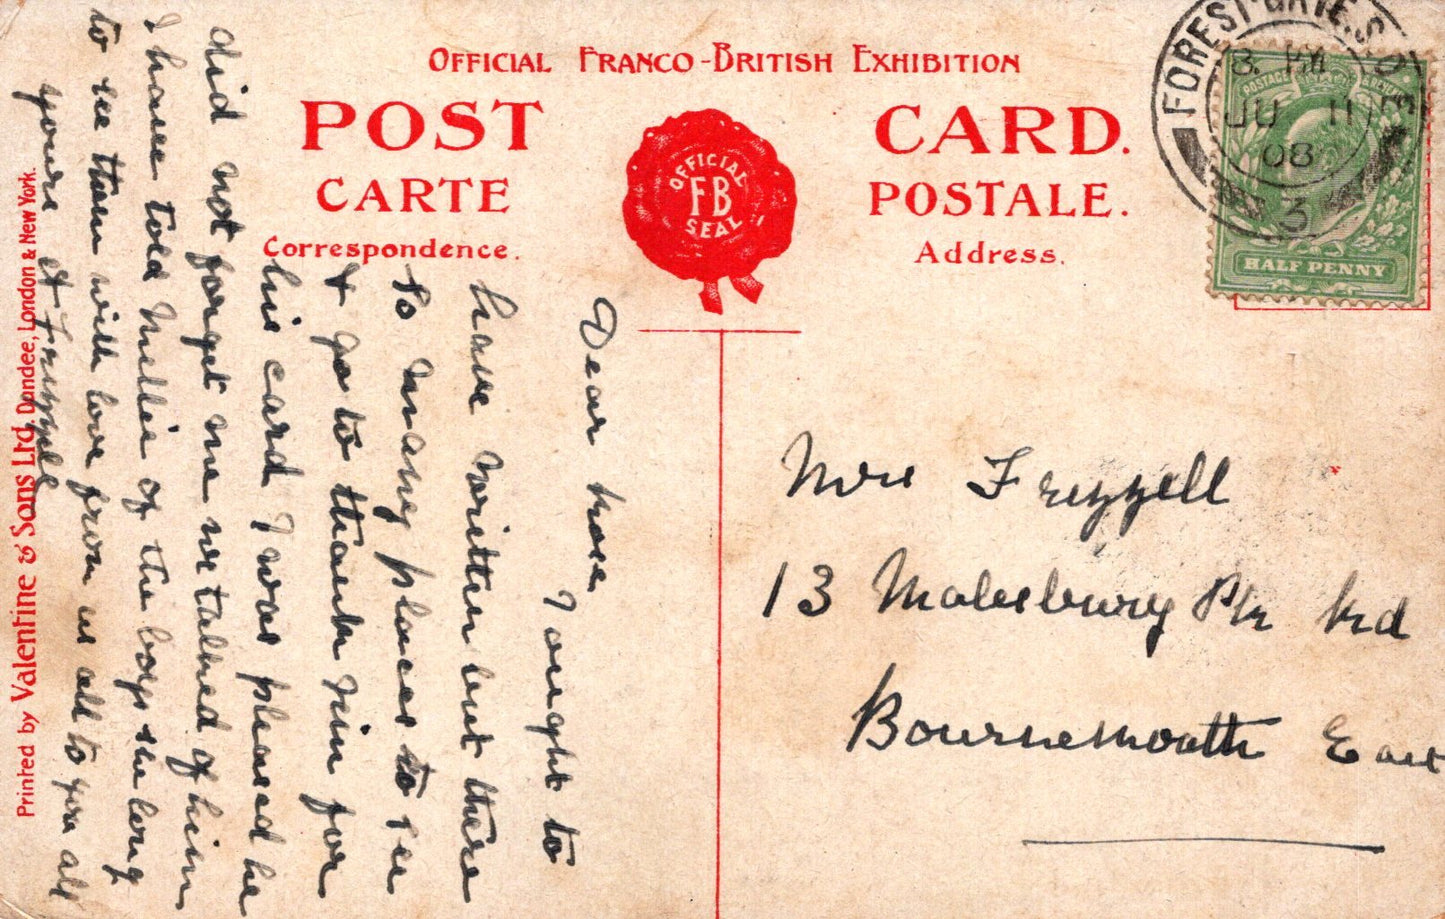 OFFICIAL FRANCO-BRITISH EXHIBITION
POST CARD.
CARTE POSTALE.
Correspondence.
Address.
OFFICIAL
FB
SEAL
FOREST GATE. S.O
E
3. PM
JU 11
08
3
POSTAGE
HALF PENNY
Dear
I ought to
have written but there
so many places to see
& go to thank him for
his card I was pleased he
did not forget me we talked of him
I have told Nellie of the boys she long
to see them with love from us all to you all
yours
Frizzell
Mrs Frizzell
13 Malesbury Pk Rd
Bournemouth East
Printed by Valentine & Sons Ltd. Dundee, London & New York.